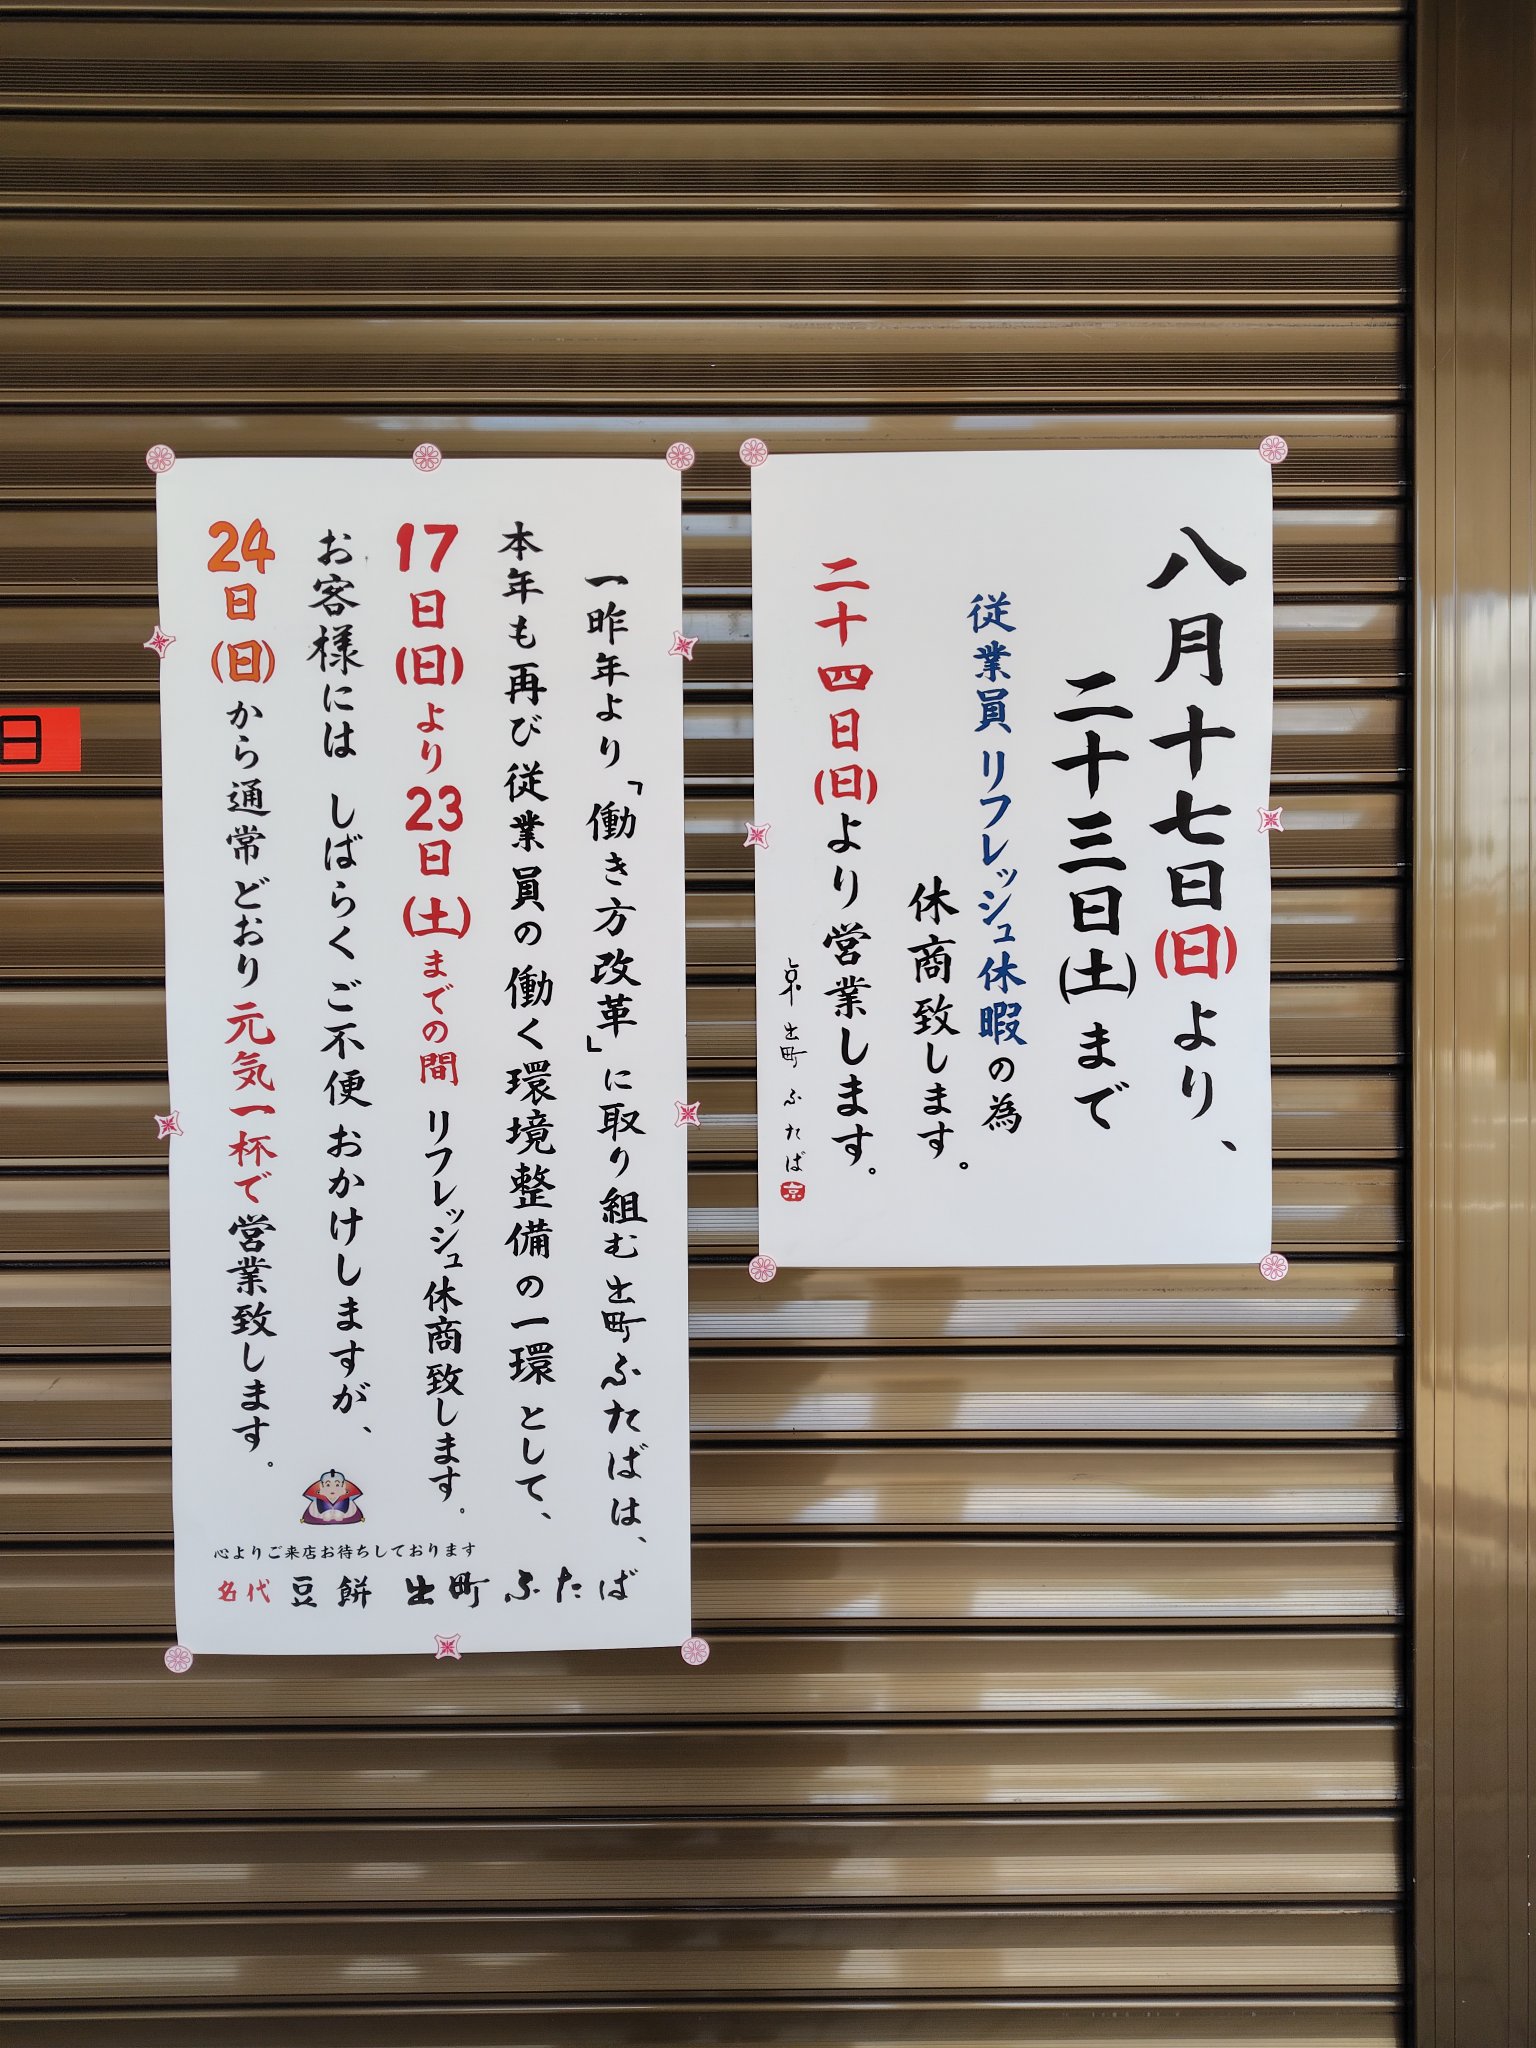 八月十七日(日)より、
二十三日(土)まで
従業員リフレッシュ休暇の為
休商致します。
二十四日(日)より営業します。
京 出町 ふたば 京
一昨年より「働き方改革」に取り組む出町ふたばは、
本年も再び従業員の働く環境整備の一環として、
17日(日)より23日(土)までの間 リフレッシュ休商致します。
お客様には しばらくご不便 おかけしますが、
24日(日)から通常どおり元気一杯で営業致します。
心よりご来店お待ちしております
名代 豆餅 出町ふたば
日